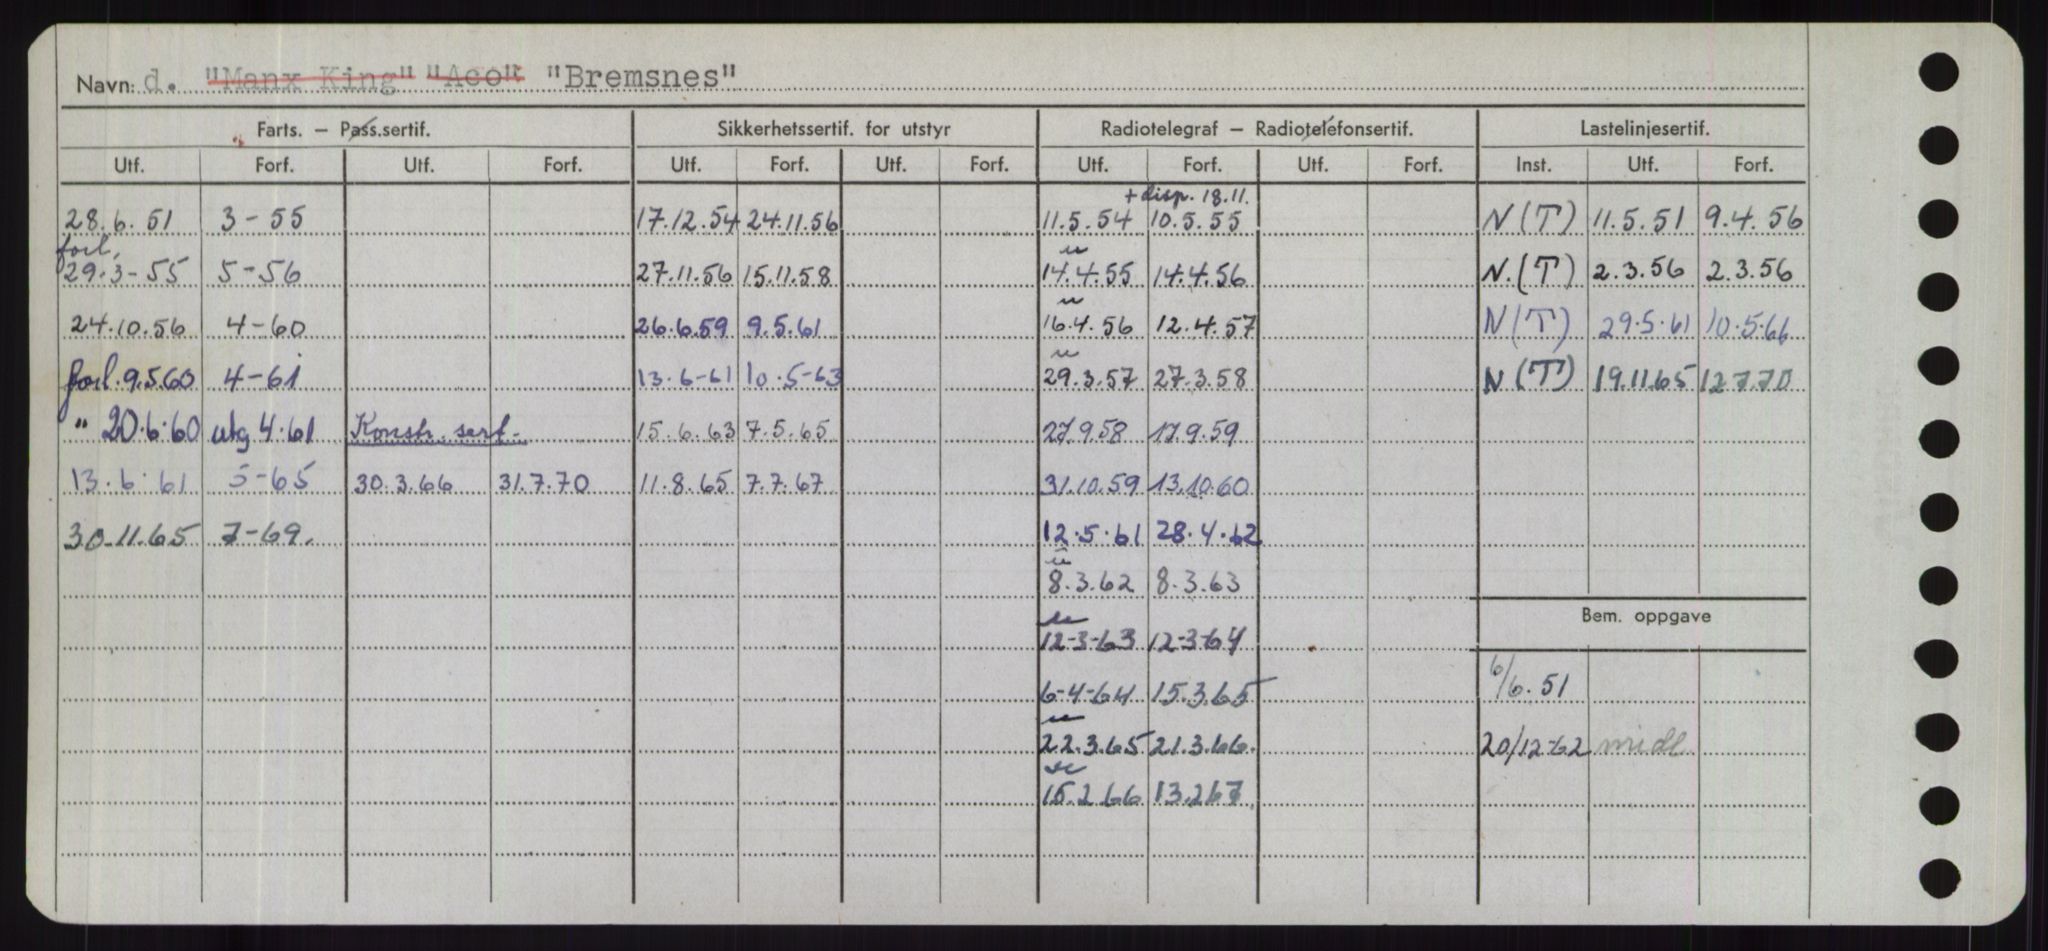 Navn: d. "Manx King" "Aco" "Bremsnes"
Farts. — Pass.sertif. Sikkerhetssertif. for utstyr Radiotelegraf — Radiotelefonsertif. Lastelinjesertif.
Utf. Forf. Utf. Forf. Utf. Forf. Utf. Forf. Utf. Forf. Utf. Forf. Inst. Utf. Forf.
+ disp. 18.11.
28.6.51 3-55 17.12.54 24.11.56 11.5.54 10.5.55 N(T) 11.5.51 9.4.56
forl. u
29.3-55 5-56 27.11.56 15.11.58 14.4.55 14.4.56 N.(T) 2.3.56 2.3.56
u
24.10.56 4-60 26.6.59 9.5.61 16.4.56 12.4.57 N(T) 29.5.61 10.5.66
u
forl. 9.5.60 4-61 13.6-61 10.5-63 29.3.57 27.3.58 N(T) 19.11.65 12.7.70
" 20.6.60 utg 4.61 Konstr. sert. 15.6.63 7.5.65 27.9.58 17.9.59
13.6.61 5-65 30.3.66 31.7.70 11.8.65 7.7.67 31.10.59 13.10.60
30.11.65 7-69. 12.5.61 28.4.62
u
8.3.62 8.3.63
Bem. oppgave
u
12-3-63 12-3-64
6-4-64 15.3.65 6/6.51
u
22.3.65 21.3.66. 20/12-62 midl
u
15.2.66 13.2.67